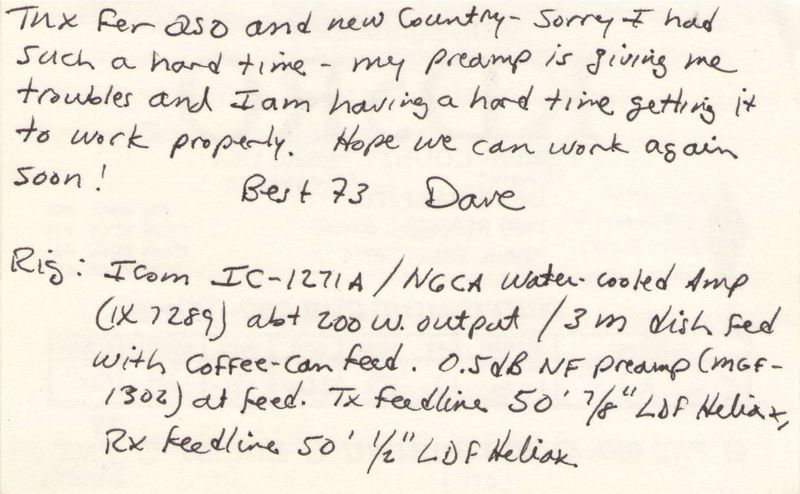 Tnx fer QSO and new country - Sorry I had
such a hard time - my preamp is giving me
troubles and I am having a hard time getting it
to work properly. Hope we can work again
soon! Best 73 Dave
Rig: Icom IC-1271A / N6CA water-cooled Amp
(1X 7289) abt 200 W. output / 3 m dish fed
with coffee-can feed. 0.5 dB NF preamp (MGF-
1302) at feed. Tx feedline 50' 7/8" LDF Heliax,
Rx feedline 50' 1/2" LDF Heliax